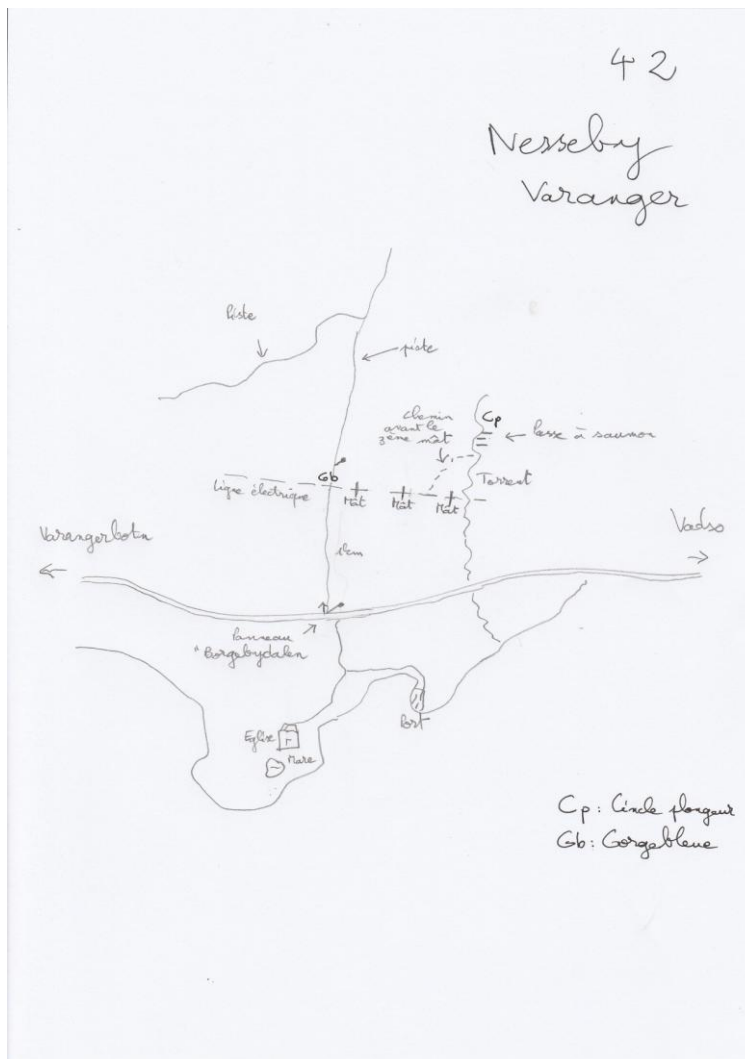 42
Nesseby
Varanger
Piste
piste
chemin
avant le
3ème mât
Cp
Passe à saumon
Gb
Ligne électrique
Mât
Mât
Mât
Torrent
Varangerbotn
Vadso
1km
Panneau
"Borgebydalen
Eglise
Mare
Port
Cp: Cincle plongeur
Gb: Gorgebleue